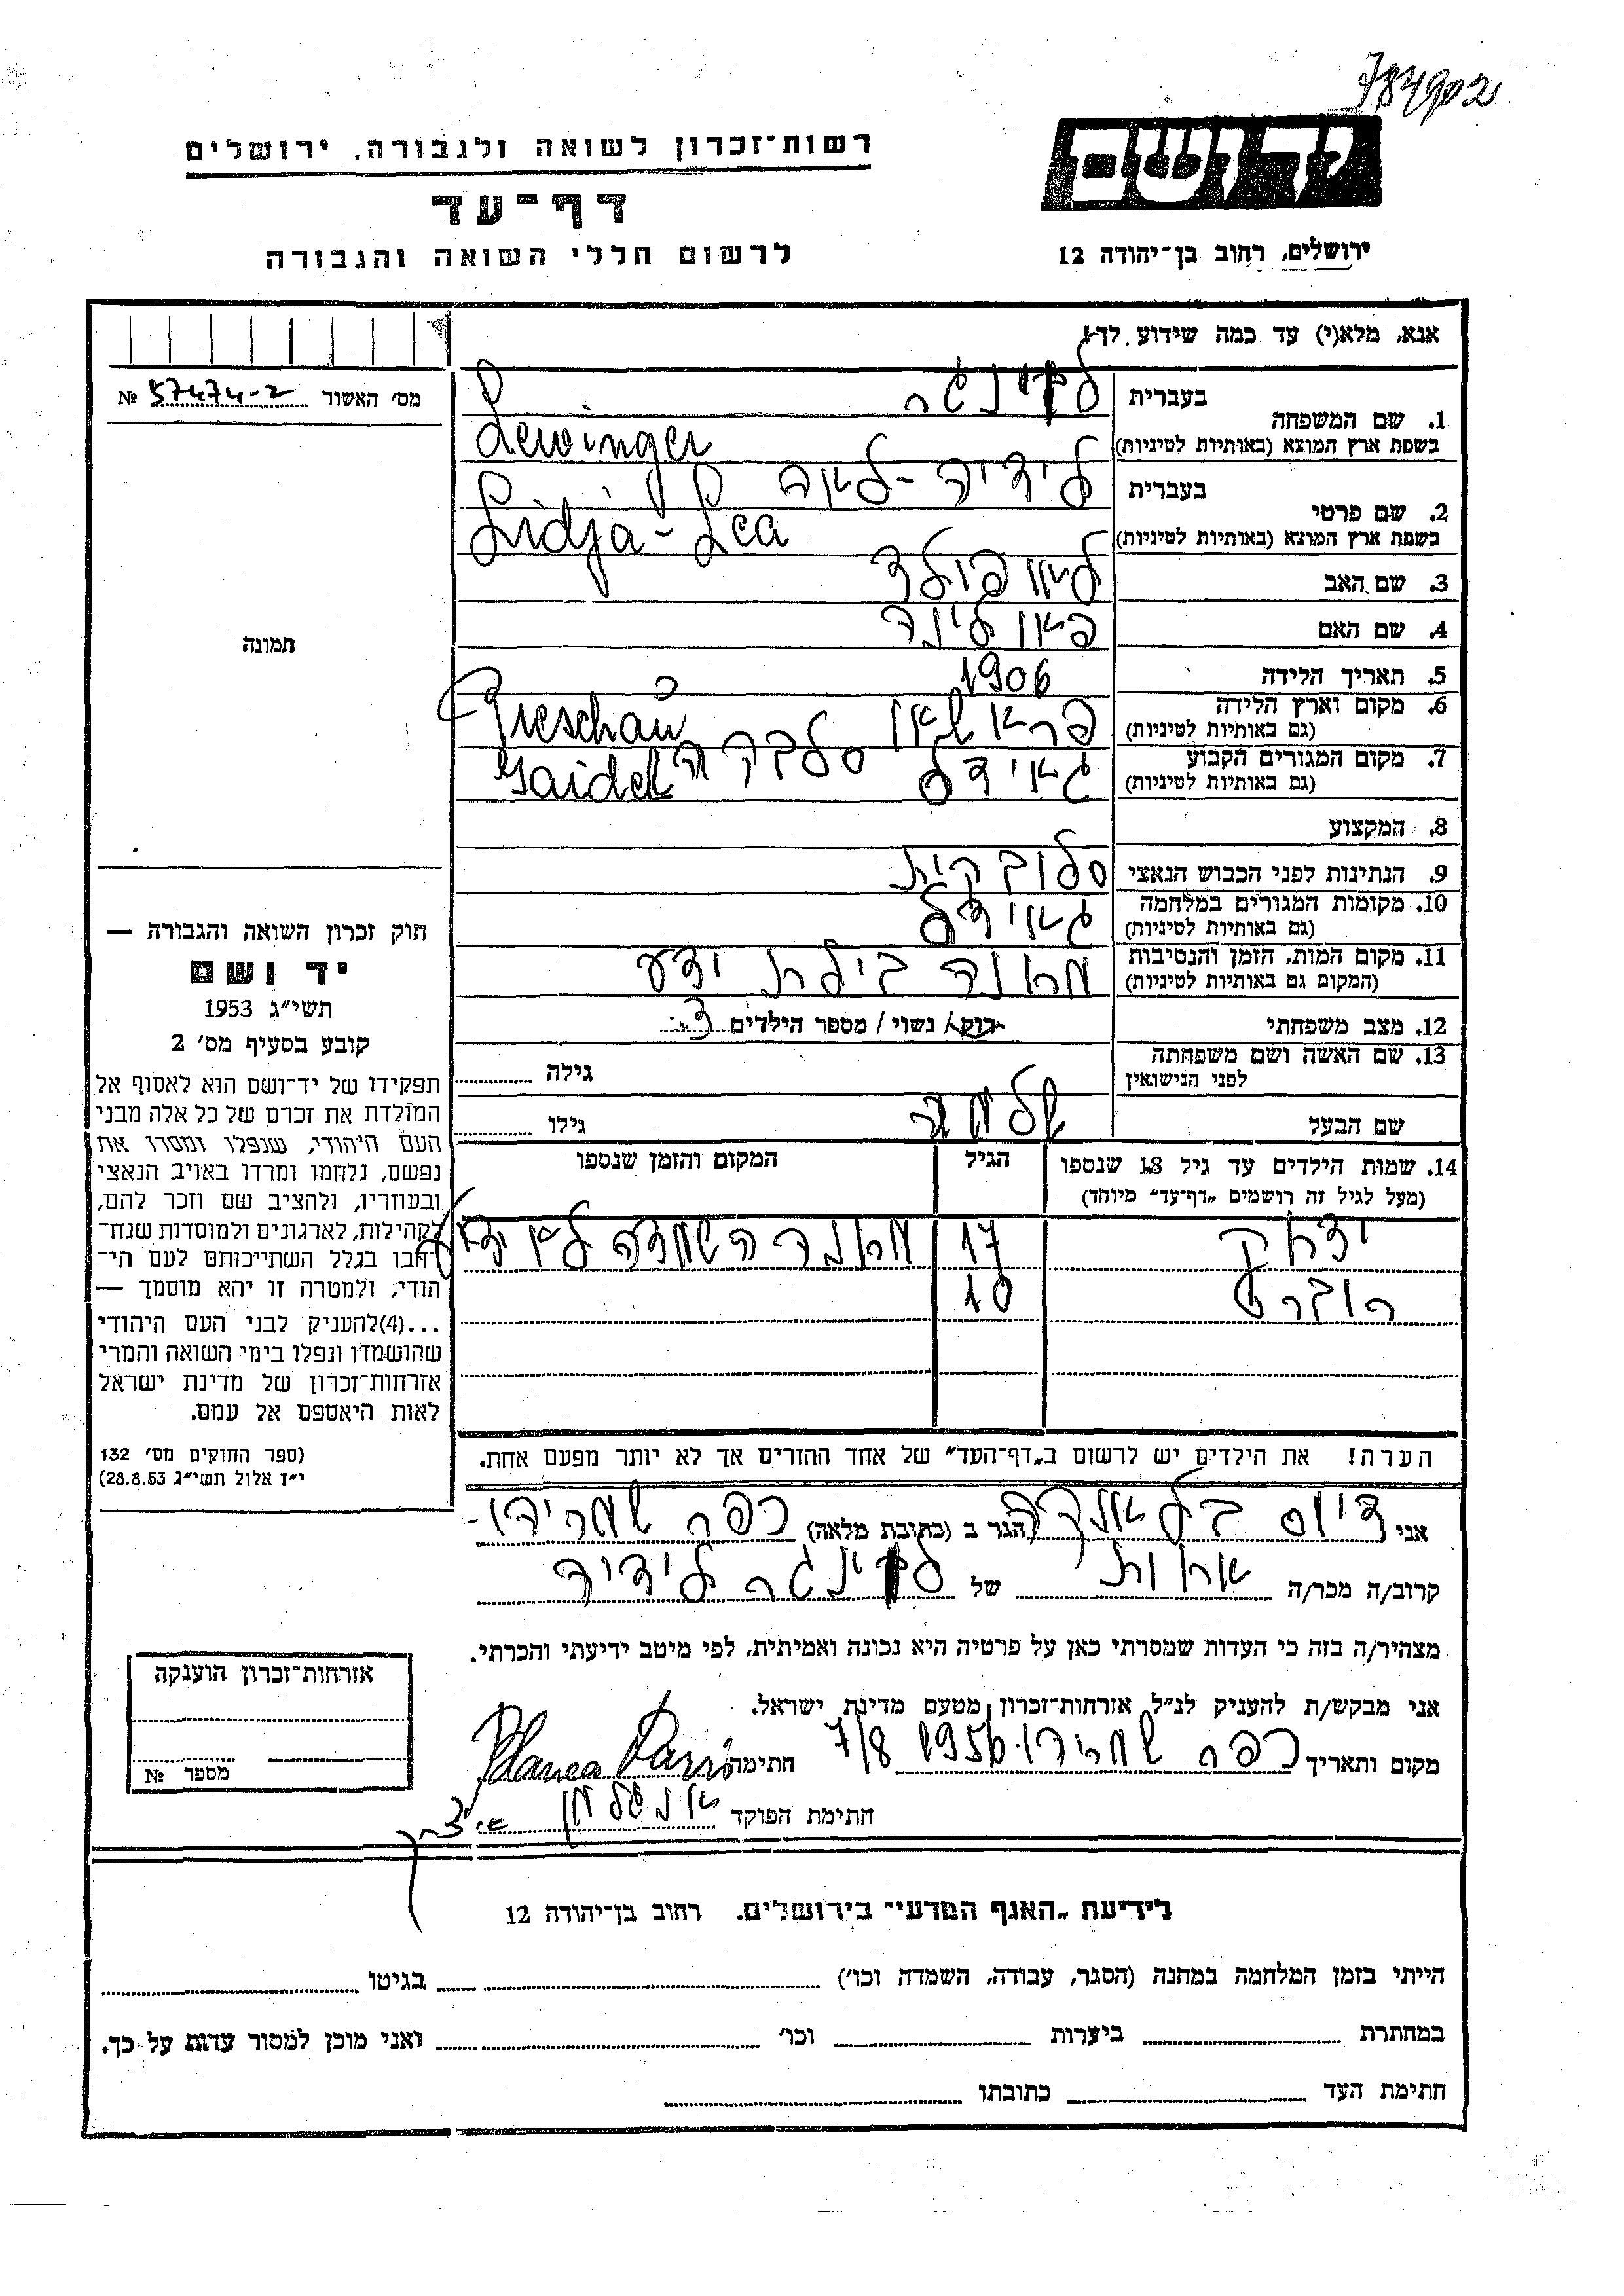 784902
רשות־זכרון לשואה ולגבורה, ירושלים
ידושם
דף־עד
ירושלים, רחוב בן־יהודה 12
לרשום חללי השואה והגבורה
אנא, מלא(י) עד כמה שידוע לך!
מס׳ האשור 57474-2 №
תמונה
1. שם המשפחה
בעברית לוינגר
בשפת ארץ המוצא (באותיות לטיניות) Lewinger
2. שם פרטי
בעברית לידיה - לאה
בשפת ארץ המוצא (באותיות לטיניות) Lidja - Lea
3. שם האב לאופולד
4. שם האם פאולינה
5. תאריך הלידה 1906
6. מקום וארץ הלידה
(גם באותיות לטיניות)
7. מקום המגורים הקבוע
(גם באותיות לטיניות) Gaidel
8. המקצוע
9. הנתינות לפני הכבוש הנאצי סלובקית
10. מקומות המגורים במלחמה
(גם באותיות לטיניות) גאידל
11. מקום המות, הזמן והנסיבות
(המקום גם באותיות לטיניות) מחנה בילתי ידע
12. מצב משפחתי רוק/ נשוי/ מספר הילדים 3
13. שם האשה ושם משפחתה
לפני הנישואין גילה
שם הבעל גילו
14. שמות הילדים עד גיל 18 שנספו הגיל המקום והזמן שנספו
(מעל לגיל זה רושמים „דף־עד” מיוחד)
יצחק 17 מחנה השמדה לא ידוע
רוברט 10
הערה! את הילדים יש לרשום ב„דף־העד” של אחד ההורים אך לא יותר מפעם אחת.
חוק זכרון השואה והגבורה —
יד ושם
תשי״ג 1953
קובע בסעיף מס׳ 2
תפקידו של יד־ושם הוא לאסוף אל
המולדת את זכרם של כל אלה מבני
העם היהודי, שנפלו ומסרו את
נפשם, נלחמו ומרדו באויב הנאצי
ובעוזריו, ולהציב שם וזכר להם,
לקהילות, לארגונים ולמוסדות שנח־
רבו בגלל השתייכותם לעם הי־
הודי, ולמטרה זו יהא מוסמך —
...(4)להעניק לבני העם היהודי
שהושמדו ונפלו בימי השואה והמרי
אזרחות־זכרון של מדינת ישראל
לאות היאספם אל עמם.
(ספר החוקים מס׳ 132
י״ז אלול תשי״ג 28.8.53)
אני הגר ב (כתובת מלאה) כפר שמריהו
קרוב/ה מכר/ה אחות של לוינגר לידיה
מצהיר/ה בזה כי העדות שמסרתי כאן על פרטיה היא נכונה ואמיתית, לפי מיטב ידיעתי והכרתי.
אני מבקש/ת להעניק לנ״ל אזרחות־זכרון מטעם מדינת ישראל.
מקום ותאריך כפר שמריהו 7/8 1956 חתימה Blanca
חתימת הפוקד
אזרחות־זכרון הוענקה
מספר №
לידיעת „האגף המדעי” בירושלים. רחוב בן־יהודה 12
הייתי בזמן המלחמה במחנה (הסגר, עבודה, השמדה וכו׳) בגיטו
במחתרת ביערות וכו׳ ואני מוכן למסור עדות על כך.
חתימת העד כתובתו